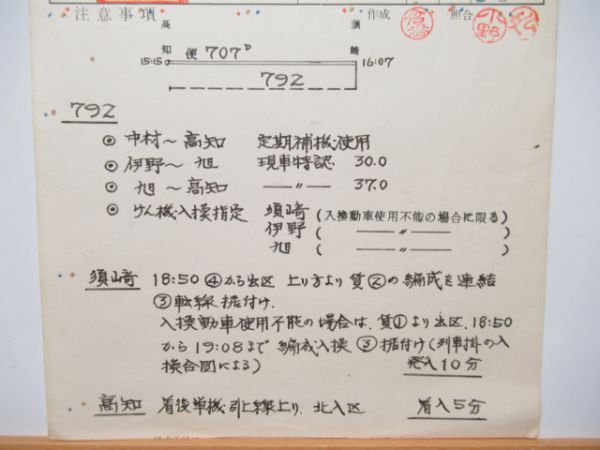 注意事項
作成 照合
高知 須崎
15:15 便 707D 16:07
792
792
◎ 中村～高知 定期補機使用
◎ 伊野～旭 現車特認 30.0
◎ 旭～高知 —〃— 37.0
◎ けん機入換指定 須崎 (入換動車使用不能の場合に限る)
伊野 ( —〃— )
旭 ( —〃— )
須崎 18:50 ④から出区 上り方より 貨②の編成を連結
③転線 据付け.
入換動車使用不能の場合は. 貨①より出区. 18:50
から 19:08まで 編成入換 ③据付け (列車掛の入
換合図による) 発入10分
高知 着後単機引上線上り. 北入区 着入5分